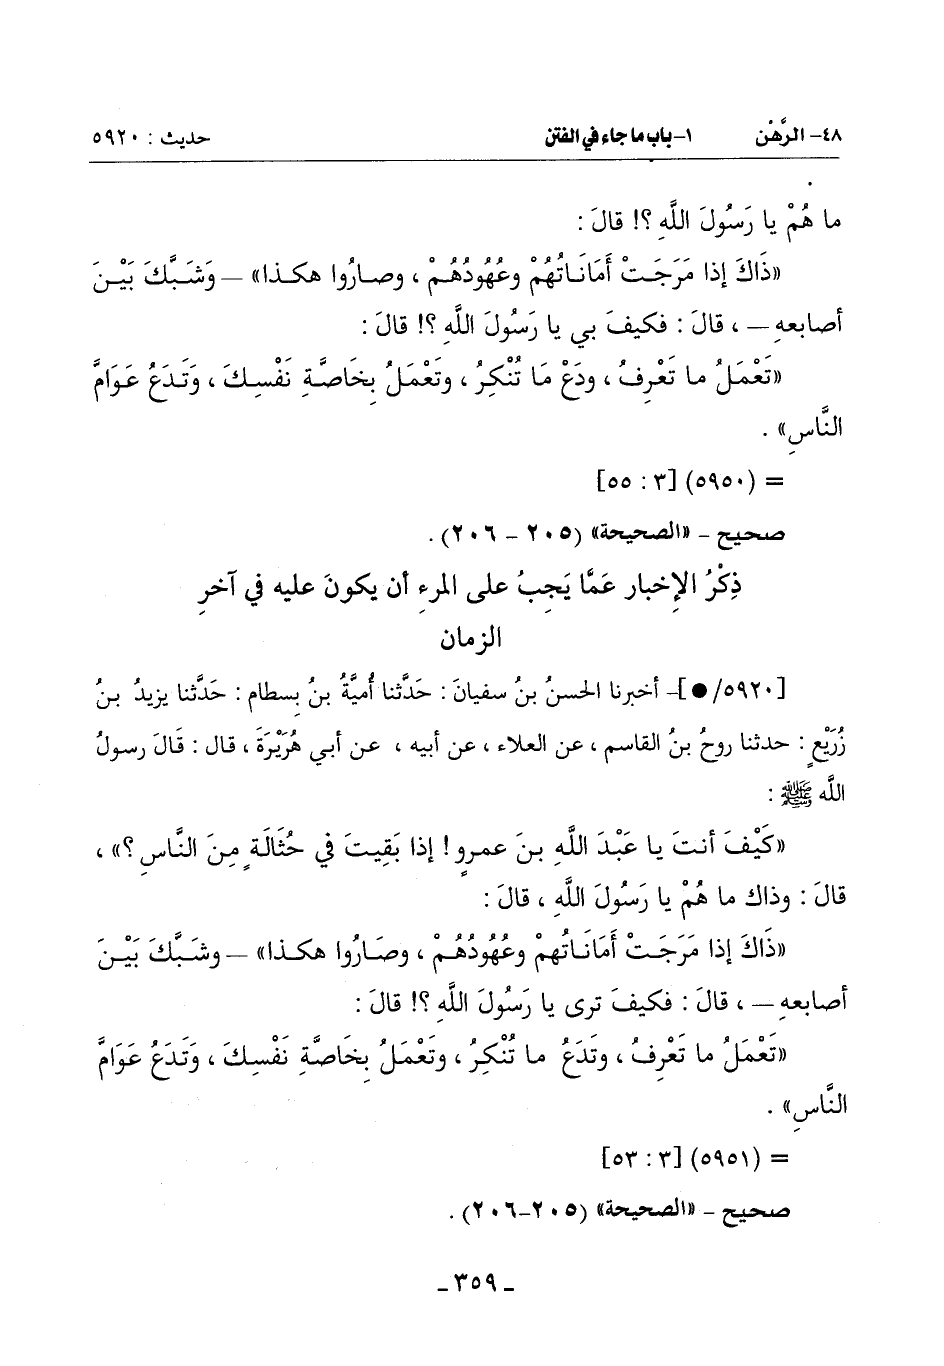 ٤٨- الرَّهْن ١- باب ما جاء في الفتن حديث : ٥٩٢٠
ما هُمْ يا رَسُولَ اللَّهِ ؟! قالَ :
«ذَاكَ إذا مَرَجَتْ أَمَانَاتُهُمْ وعُهُودُهُمْ ، وصارُوا هكذا» – وَشَبَّكَ بَيْنَ
أصابعهِ – ، قالَ : فكيفَ بي يا رَسُولَ اللَّهِ ؟! قالَ :
«تَعْمَلُ ما تَعْرِفُ ، ودَعْ مَا تُنْكِرُ ، وتَعْمَلُ بِخَاصَّةِ نَفْسِكَ ، وَتَدَعُ عَوَامَّ
النَّاسِ» .
= (٥٩٥٠) [٣ : ٥٥]
صحيح - «الصحيحة» (٢٠٥ - ٢٠٦) .
ذِكْرُ الإخبار عَمَّا يَجِبُ على المرءِ أن يكونَ عليه في آخرِ
الزمان
[٥٩٢٠/●]- أخبرنا الحسنُ بنُ سفيانَ : حَدَّثنا أُميَّةُ بنُ بِسطام : حَدَّثنا يزيدُ بنُ
زُرَيْعٍ : حدثنا روحُ بنُ القاسم ، عن العلاء ، عن أبيه ، عن أبي هُرَيْرَةَ ، قال : قَالَ رسولُ
اللَّه ﷺ :
«كَيْفَ أنتَ يا عَبْدَ اللَّهِ بنَ عمرٍو ! إذا بَقِيتَ في حُثَالَةٍ مِنَ النَّاسِ ؟» ،
قالَ : وذاك ما هُمْ يا رَسُولَ اللَّهِ ، قالَ :
«ذَاكَ إذا مَرَجَتْ أَمَانَاتُهمْ وعُهُودُهُمْ ، وصَارُوا هكذا» – وشَبَّكَ بَيْنَ
أصابعهِ – ، قالَ : فكيفَ ترى يا رَسُولَ اللَّهِ ؟! قالَ :
«تَعْمَلُ ما تَعْرِفُ ، وتَدَعُ ما تُنْكِرُ ، وتَعْمَلُ بِخَاصَّةِ نَفْسِكَ ، وَتَدَعُ عَوَامَّ
النَّاسِ» .
= (٥٩٥١) [٣ : ٥٣]
صحيح - «الصحيحة» (٢٠٥-٢٠٦) .
- ٣٥٩ -